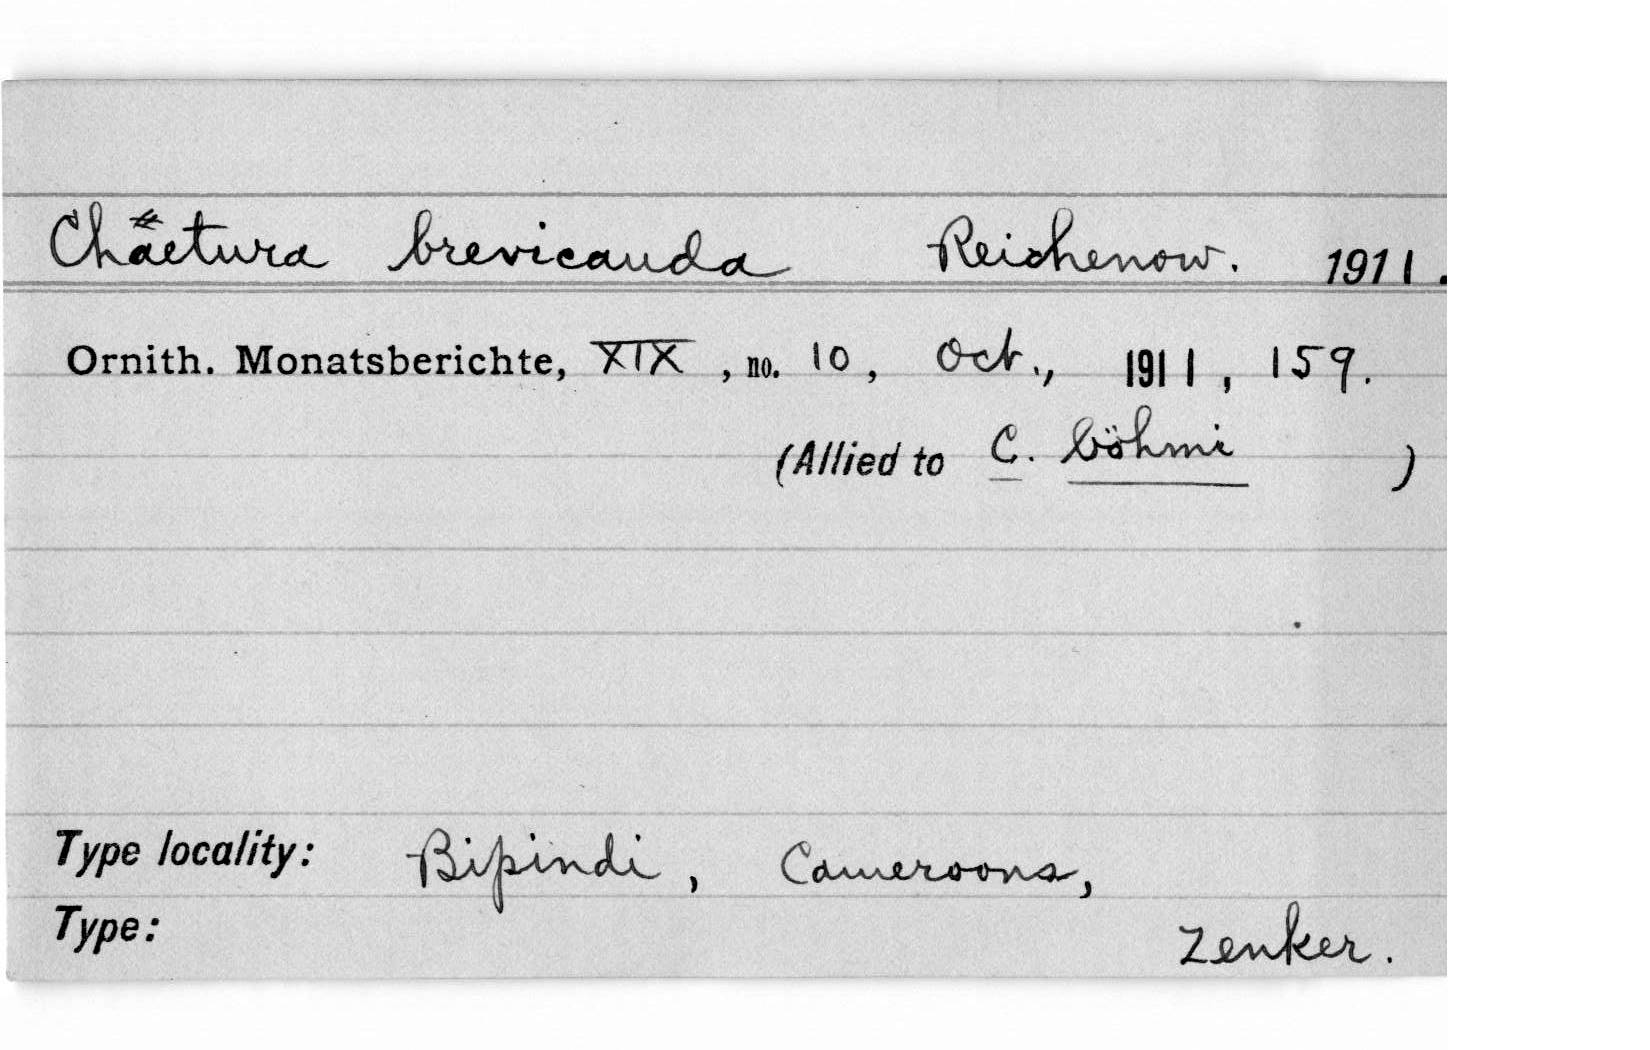 Chaetura brevicauda Reichenow. 1911.
Ornith. Monatsberichte, XIX, no. 10, Oct., 1911, 159.
(Allied to C. böhmi )
Type locality: Bipindi, Cameroons,
Type: Zenker.